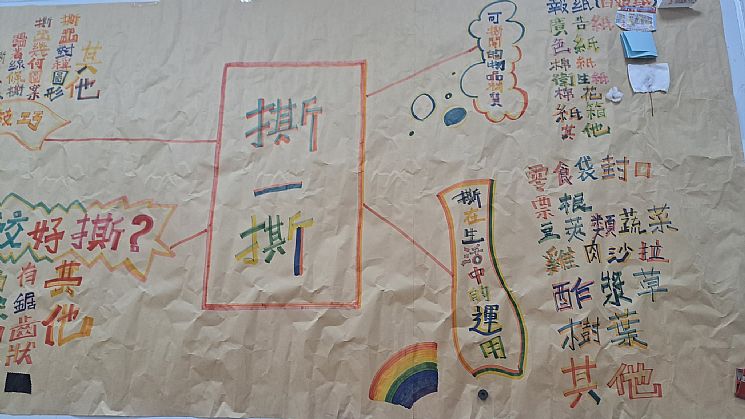 其他
撕出對稱圖形
撕出幾何圖案
技巧
撕一撕
可撕開的物品材質
報紙
廣告紙
色紙
棉紙
衛生紙
棉花
紙箱
其他
好撕？
其他
有鋸齒狀
撕在生活中的運用
零食袋封口
雲票根
豆莢類蔬菜
雞肉沙拉
酢漿草
樹葉
其他